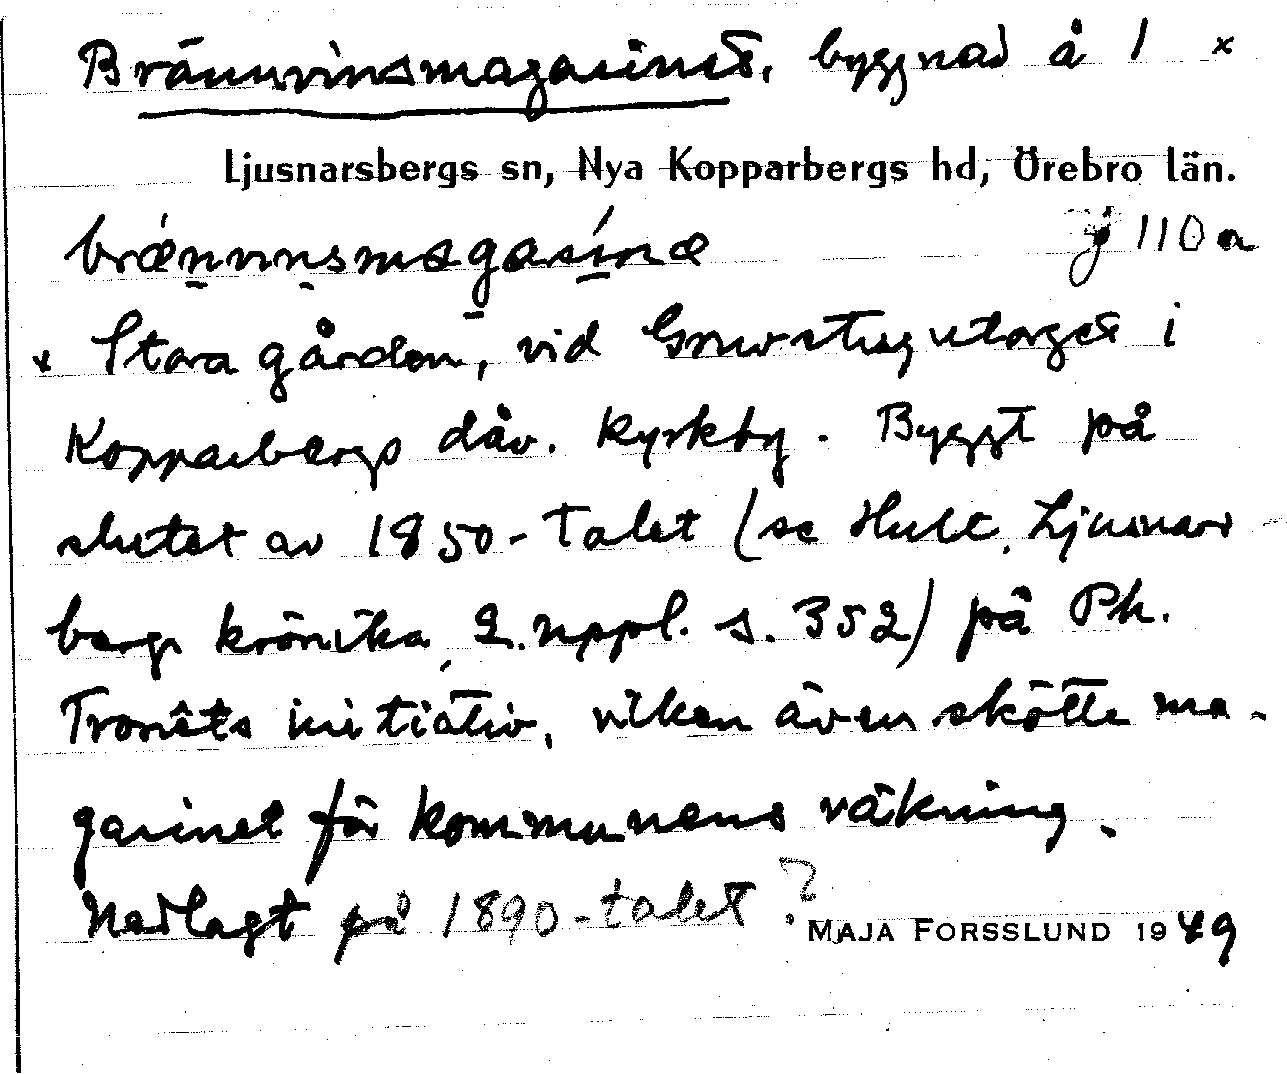 Brännvinsmagasinet, byggnad å 1 x
Ljusnarsbergs sn, Nya Kopparbergs hd, Örebro län.
brænvinsmagasinæ j 110 a
x Stora gården, vid Gruvstugutorget i
Kopparbergs dåv. kyrkby. Byggt på
slutet av 1850-talet (se Hult, Ljusnars
bergs krönika, 2. uppl. s. 352) på Ph.
initiativ, vilken även skötte ma-
gasinet för kommunens räkning.
Nedlagt på 1890-talet?
MAJA FORSSLUND 1949